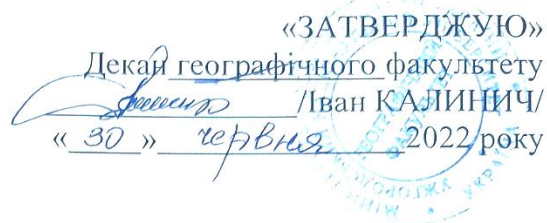 «ЗАТВЕРДЖУЮ»
Декан географічного факультету
/Іван КАЛИНИЧ/
« 30 » червня 2022 року